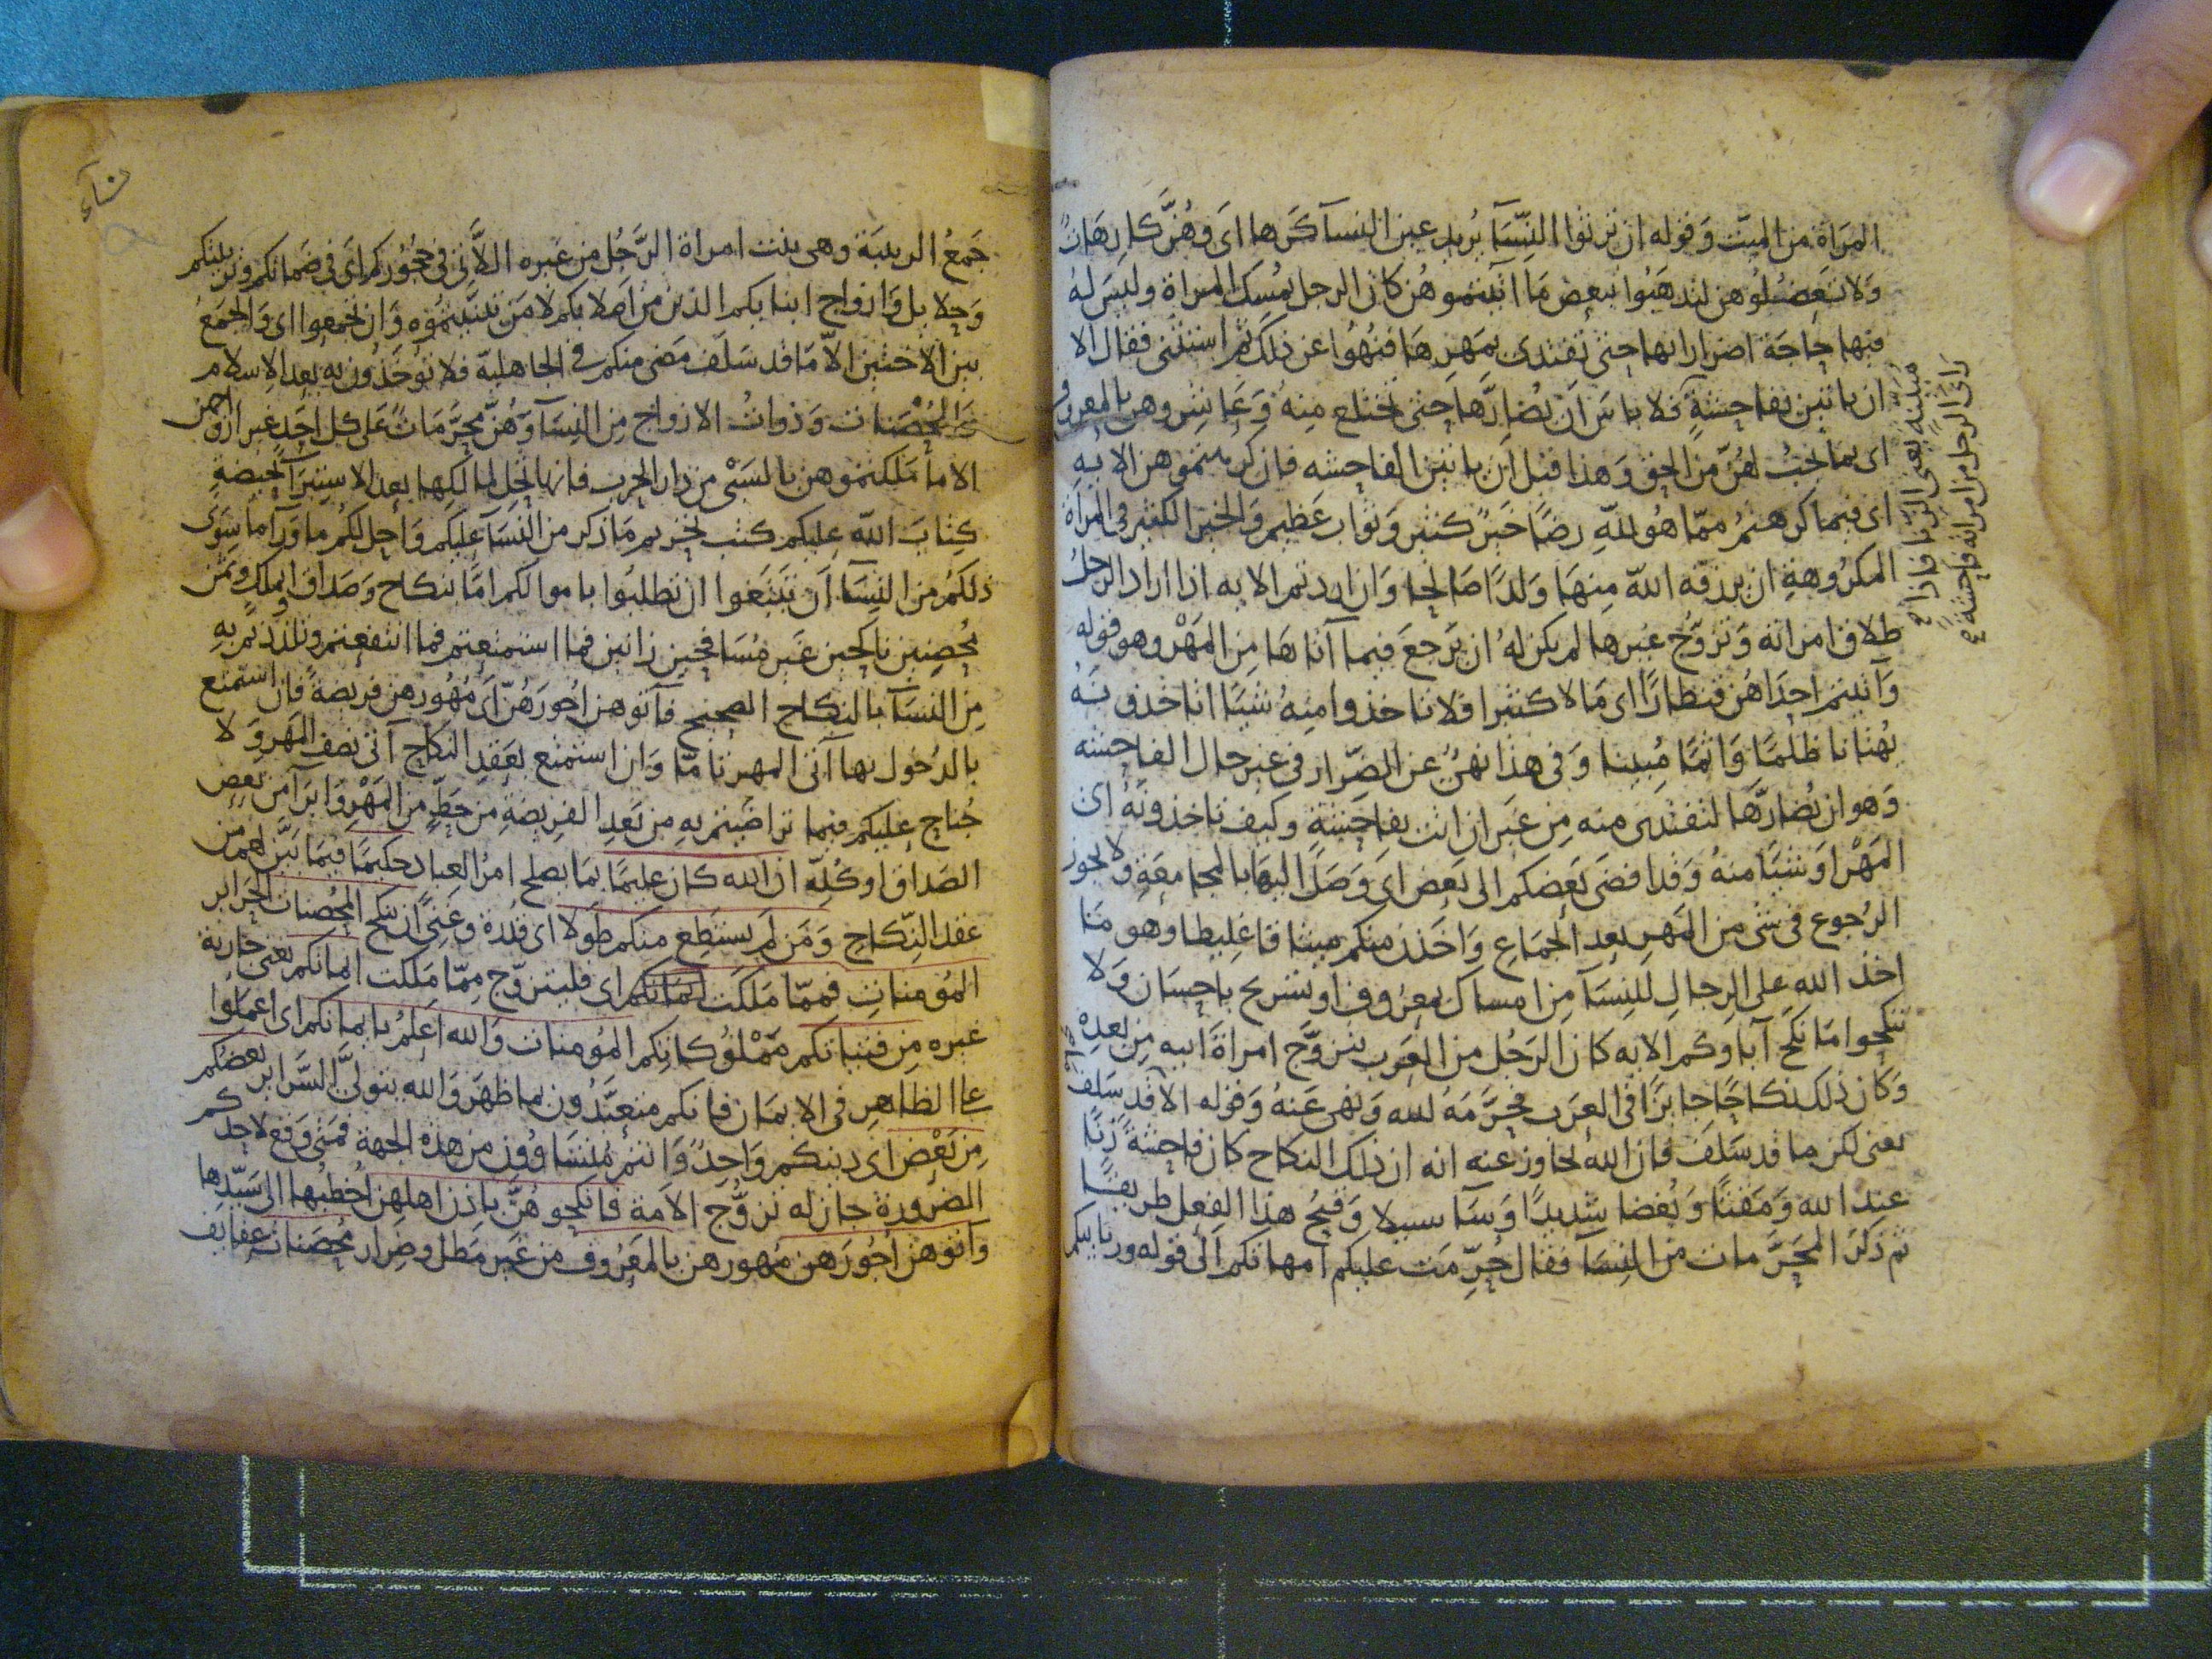 المرَاة من الميّت وَقوله ان ترثوا النِّسَآ يُريد عين النسآ كَرها اى وَهُنَّ كارِهَاتٌ
وَلا تَعضلُوهن لتذهَبُوا ببعض مَا اتيتموهن كان الرجل يُمسِك المراة وليسَ لهُ
فيها حَاجَة اضرارا بها حتى تفتدى بمَهرِهَا فنُهُوا عن ذلك ثم استثنى فقال الا
ان ياتين بفاحشةٍ فلا باس اَن يُضارَّها حتى تختلع منه وَعَاشروهن بالمعروف
اى بما يجبُ لهُنّ من الحق وَهذا قبل ان ياتين الفاحشه فان كرهتموهن الايه
اى فيما كرهتمُ ممّا هُو للهِ رضًا خَيرٌ كثير وَثواب عَظيم وَالخير الكثير فى المراة
المكرُوهةِ ان يرزقه اللّه مِنهَا وَلدًا صَالحا وَان اردتم الايه اذا اراد الرجلُ
طلاق امراته وَتزوّج غيرها لم يكن لهُ ان يَرجعَ فيما آتاها مِن المَهْر وهو قوله
وَآتيتم احدَاهُن قنطارًا اى مَالا كثيرا فلا تاخذوا منهُ شيئا اتاخذونهُ
بُهتانا ظلمًا وَاثمًا مُبينا وَفى هذا نهىٌ عن الضّرار فى غير حال الفاحشه
وَهو ان يُضارَّها لتفتدى منه مِن غَير ان اتت بفاحشةٍ وكيف تاخذونَهُ اى
المَهْر اوَ شيًا منهُ وَقد افضى بَعضكم الى بَعض اى وَصَل اليها بالمجامعَةِ ولا يجوز
الرُجوع فى شى من المَهر بعد الجمَاع وَاخَذن منكم ميثاقا غليظا وهو مَا
اخذ الله على الرجالِ للنِسَآ مِن امساك بمعرُوف اوتسريح باحِسَان وَلا
تنكحوا مَا نكح آباؤكم الايه كان الرَجُل من العَرب يتزوَّج امراةَ ابيه مِن بَعدِه
وَكان ذلك نكاحًا جَايزًا فى العرَب فحرَّمَهُ لله وَنهى عَنهُ وَقوله الا قد سَلف
يعنى لكن ما قد سَلف فان اللهُ تجاوز عنه انه ان ذلك النكاح كان فاحشةً زنًا
عند الله وَمَقتًا وَبُغضا شديدًا وَسَآ سبيلا وَقبحُ هذا الفعل طريقًا
ثم ذكَرَ المحَرَّمات من النِسَآ فقال حُرِّمَت عليكم امهاتكم الى قوله وربايبكم
مُبيّنه يعنى الزنا فاذا
رَاى الرجل من امراته فاحشه
نسآء
جَمعُ الربيبَة وهى بنت امراة الرَّجُل من غيره اللاَّتى فى حُجُوركم اى فى ضَمانكم وتربيتكم
وَحِلايل وَازواج ابنايكم الذين من اَصلابكم لا مَن تبنّيتمُوه وَان تجمعوا اى وَالجمعُ
بين الاختين الاّ مَا قد سَلَف مَضى منكم فى الجاهليّة فلا تُؤخَذُون به بعد الاِسلام
وَالمُحْصَنات وَذواتُ الازواج مِن النِسَآ وَهُنّ مُحرَّمَاتٌ على كل احدٍ غير ازواجهن
الا ما مَلكتموهن بالسَبْى من دار الحرب فانها تحِل لمالكها بعد الاستبرآ بحيضةٍ
كِتابَ اللّه عليكم كتب تحريم مَا ذكر من النِسَآ عليكم وَاحِل لكُم ما ورآ ما سِوى
ذلكمُ من النِسَآ اَن تَبتغوا ان تطلبُوا باموالكم امّا بنكاح وَصَداق او بملكٍ وثمنٍ
مُحصِنين ناكحين غَير مُسَافحين زانين فما استمتعتم فما انتفعتم وتلذذتم بهِ
مِن النسَآ بالنكاح الصَحيح فآتوهن اجُورَهُنّ اى مُهُورهن فريضةً فان استمتع
بالدُخول بها آتى المهر تامّا وَان استمتع بعَقدِ النكاح آتى نصف المَهر وَلا
جُناح عليكم فيما تراضَيتم بهِ مِن بَعدِ الفريضةِ من حَطِّ من المَهْر وَابرآ من بعض
الصَداق او كُلّهِ ان الله كان عليمًا بمَا يصلح امرُ العِباد حكيمًا فيمَا بَيَّن لهم من
عقد النّكاح وَمَن لم يَستطع منكم طَولا اى قدُرة وَغنىً ان ينكح المُحصَنات الحَراير
المؤمنات فممّا مَلكت ايمَانكم اى فليتزوّج مِمّا مَلكت ايمانكم يعنى جارية
غيره مِن فتياتكم مَمْلُوكاتِكم المؤمنات وَالله اعلمُ بايمانكم اى اعمَلوا
على الظاهِر فى الايمَان فانكم متعبّدُون بما ظهَر وَالله يتولى السَّراير بعضكم
مِن بَعْض اى دينكم وَاحِدٌ وَانتم مُتسَاوُون من هذه الجهة فمتى وقع لاحدكم
الضرُورة جاز له تزوُّج الاَمة فانكحوهُنّ باذن اهلهن اخطبُها الى سَيّدها
وآتوهن اجُورَهن مُهورهن بالمَعرُوف من غير مَطل وضِرار مُحصَنات عفايف